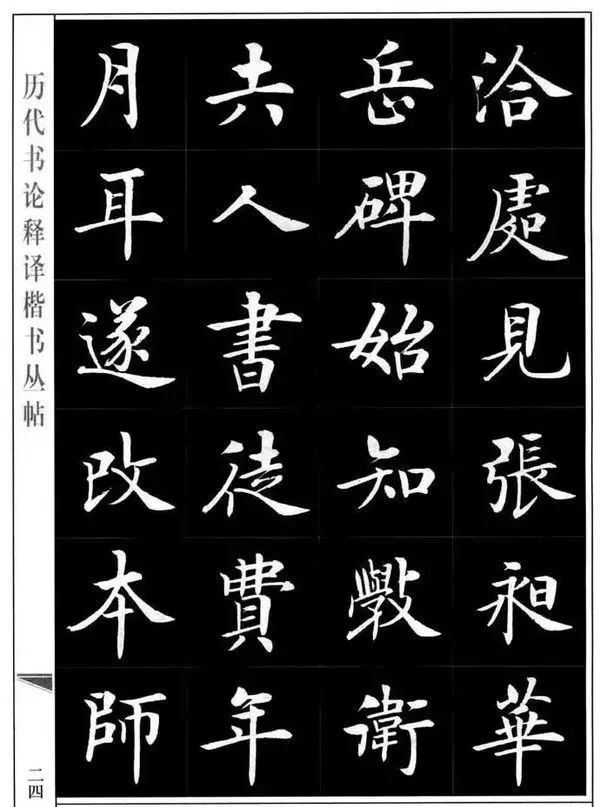 洽處見張昶華
岳碑始知斆衛
夫人書徒費年
月耳遂改本師
历代书论释译楷书丛帖
二四